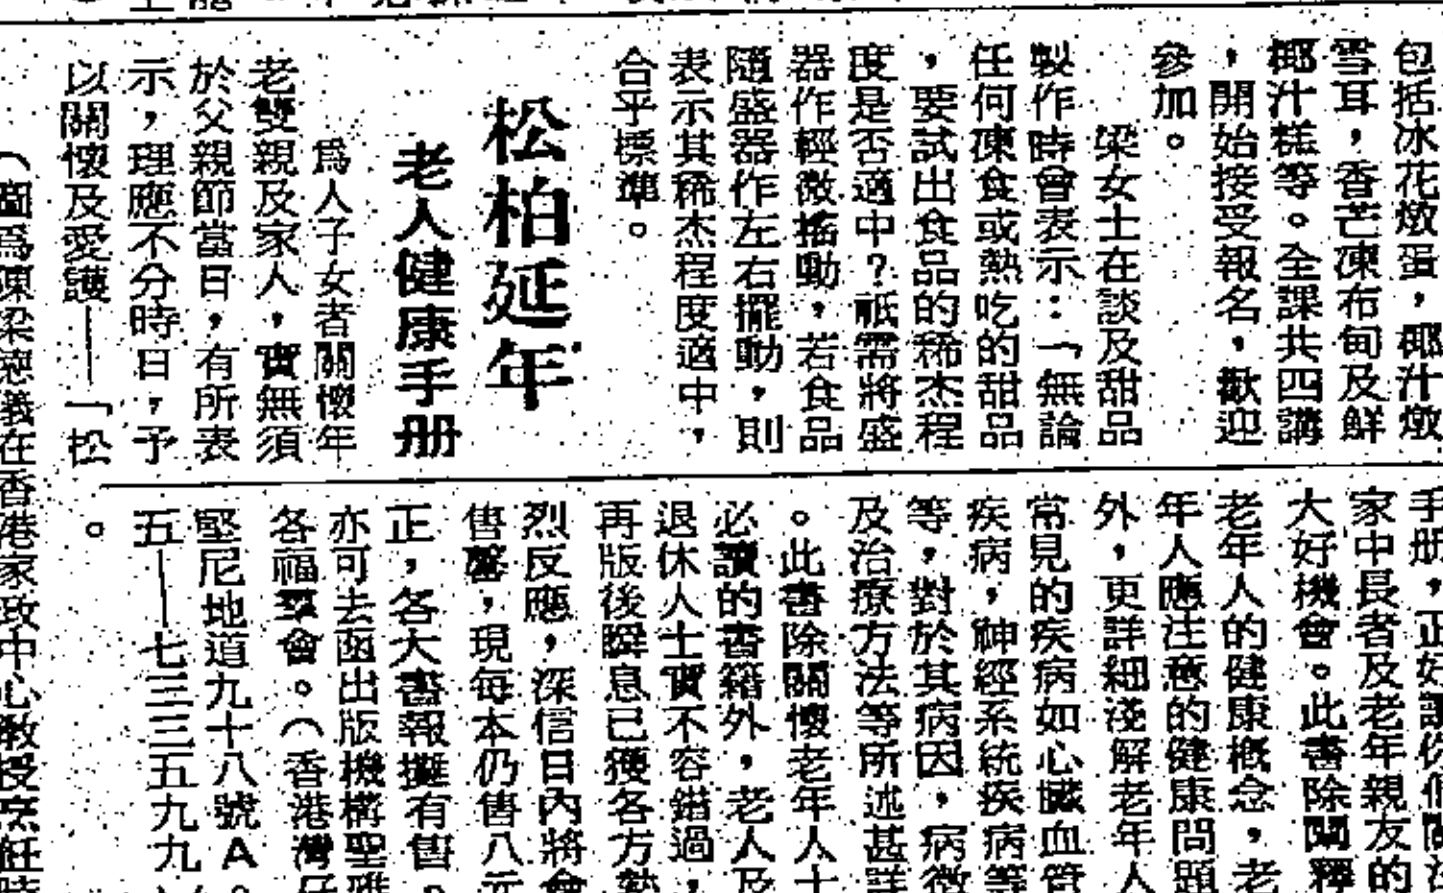 包括冰花燉蛋，椰汁燉
雪耳，香芒凍布甸及鮮
椰汁糕等。全課共四講
，開始接受報名，歡迎
參加。
梁女士在談及甜品
製作時曾表示：「無論
任何凍食或熱吃的甜品
，要試出食品的稀杰程
度是否適中？祇需將盛
器作輕微搖動，若食品
隨盛器作左右擺動，則
表示其稀杰程度適中，
合乎標準。
松柏延年
老人健康手册
爲人子女者關懷年
老雙親及家人，實無須
於父親節當日，有所表
示，理應不分時日，予
以關懷及愛護——「松
手册，正好讓你們關注
家中長者及老年親友的
大好機會。此書除闡釋
老年人的健康概念，老
年人應注意的健康問題
外，更詳細淺解老年人
常見的疾病如心臟血管
疾病，神經系統疾病等
等，對於其病因，病徵
及治療方法等所述甚詳
。此書除關懷老年人士
必讀的書籍外，老人及
退休人士實不容錯過，
再版後瞬息已獲各方熱
烈反應，深信日內將會
售罄，現每本仍售八元
正，各大書報攤有售。
亦可去函出版機構聖雅
各福羣會。（香港灣仔
堅尼地道九十八號A。
五—七三三五九九
。
（圖爲陳梁德儀在香港家政中心教授烹飪時